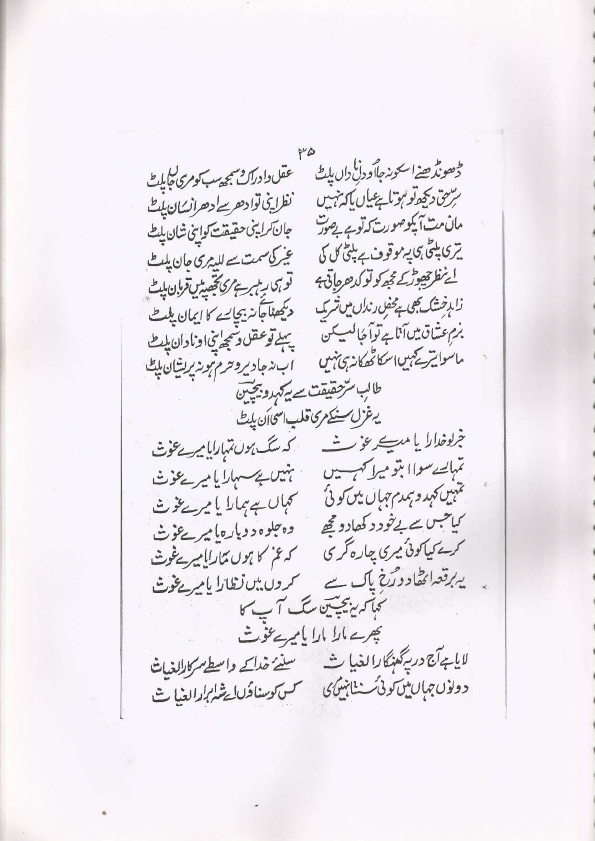 ۳۵
ڈھونڈھنے اسکو نہ جا او دلِ ناداں پلٹ عقل و ادراک و سمجھ سب کو مری جاں پلٹ
سرّ حق دیکھ تو ہوتا ہے عیاں یا کہ نہیں نظر اپنی تو ادھر سے ادھر از ساں پلٹ
مان مت آپکو صورت کہ تو ہے بے صورت جان کر اپنی حقیقت کو اپنی شان پلٹ
تیری پلٹی ہی پہ موقوف ہے پلٹی کل کی غیر کی سمت سے للہ مری جان پلٹ
اے نظر چھوڑ کے مجھ کو تو کدھر جاتی ہے تو ہی رہبر ہے مری تجھپہ میں قربان پلٹ
زاہدِ خشک بھی ہے محفلِ رنداں میں شریک دیکھنا جائے نہ بیچارے کا ایمان پلٹ
بزمِ عشاق میں آنا ہے تو آ جا لیکن پہلے تو عقل و سمجھ اپنی او نادان پلٹ
ماسوا تیرے کہیں اسکا ٹھکانہ ہی نہیں اب نہ جا دیر و حرم ہو نہ پریشان پلٹ
طالبِ سرِّ حقیقت سے یہ کہدو بیچین
یہ غزل سنکے مری قلب اسی آن پلٹ
خبر لو خدارا یا میرے غوث کہ سگ ہوں تمہارا یا میرے غوث
تمہارے سوا ابتو میرا کہیں نہیں ہے سہارا یا میرے غوث
تمہیں کہدو ہمدم جہاں میں کوئی کہاں ہے ہمارا یا میرے غوث
کیا جس سے بے خود دکھا دو مجھے وہ جلوہ دوبارہ یا میرے غوث
کرے کیا کوئی میری چارہ گری کہ غم کا ہوں مارا یا میرے غوث
یہ برقعہ اٹھا دو رخِ پاک سے کروں میں نظارا یا میرے غوث
کہا کہ یہ بیچین سگ آپ کا
پھرے مارا مارا یا میرے غوث
لایا ہے آج در پہ گنہگار الغیاث سنئے خدا کے واسطے سرکار الغیاث
دونوں جہاں میں کوئی سنتا نہیں مری کس کو سناؤں اے شہ ابرار الغیاث